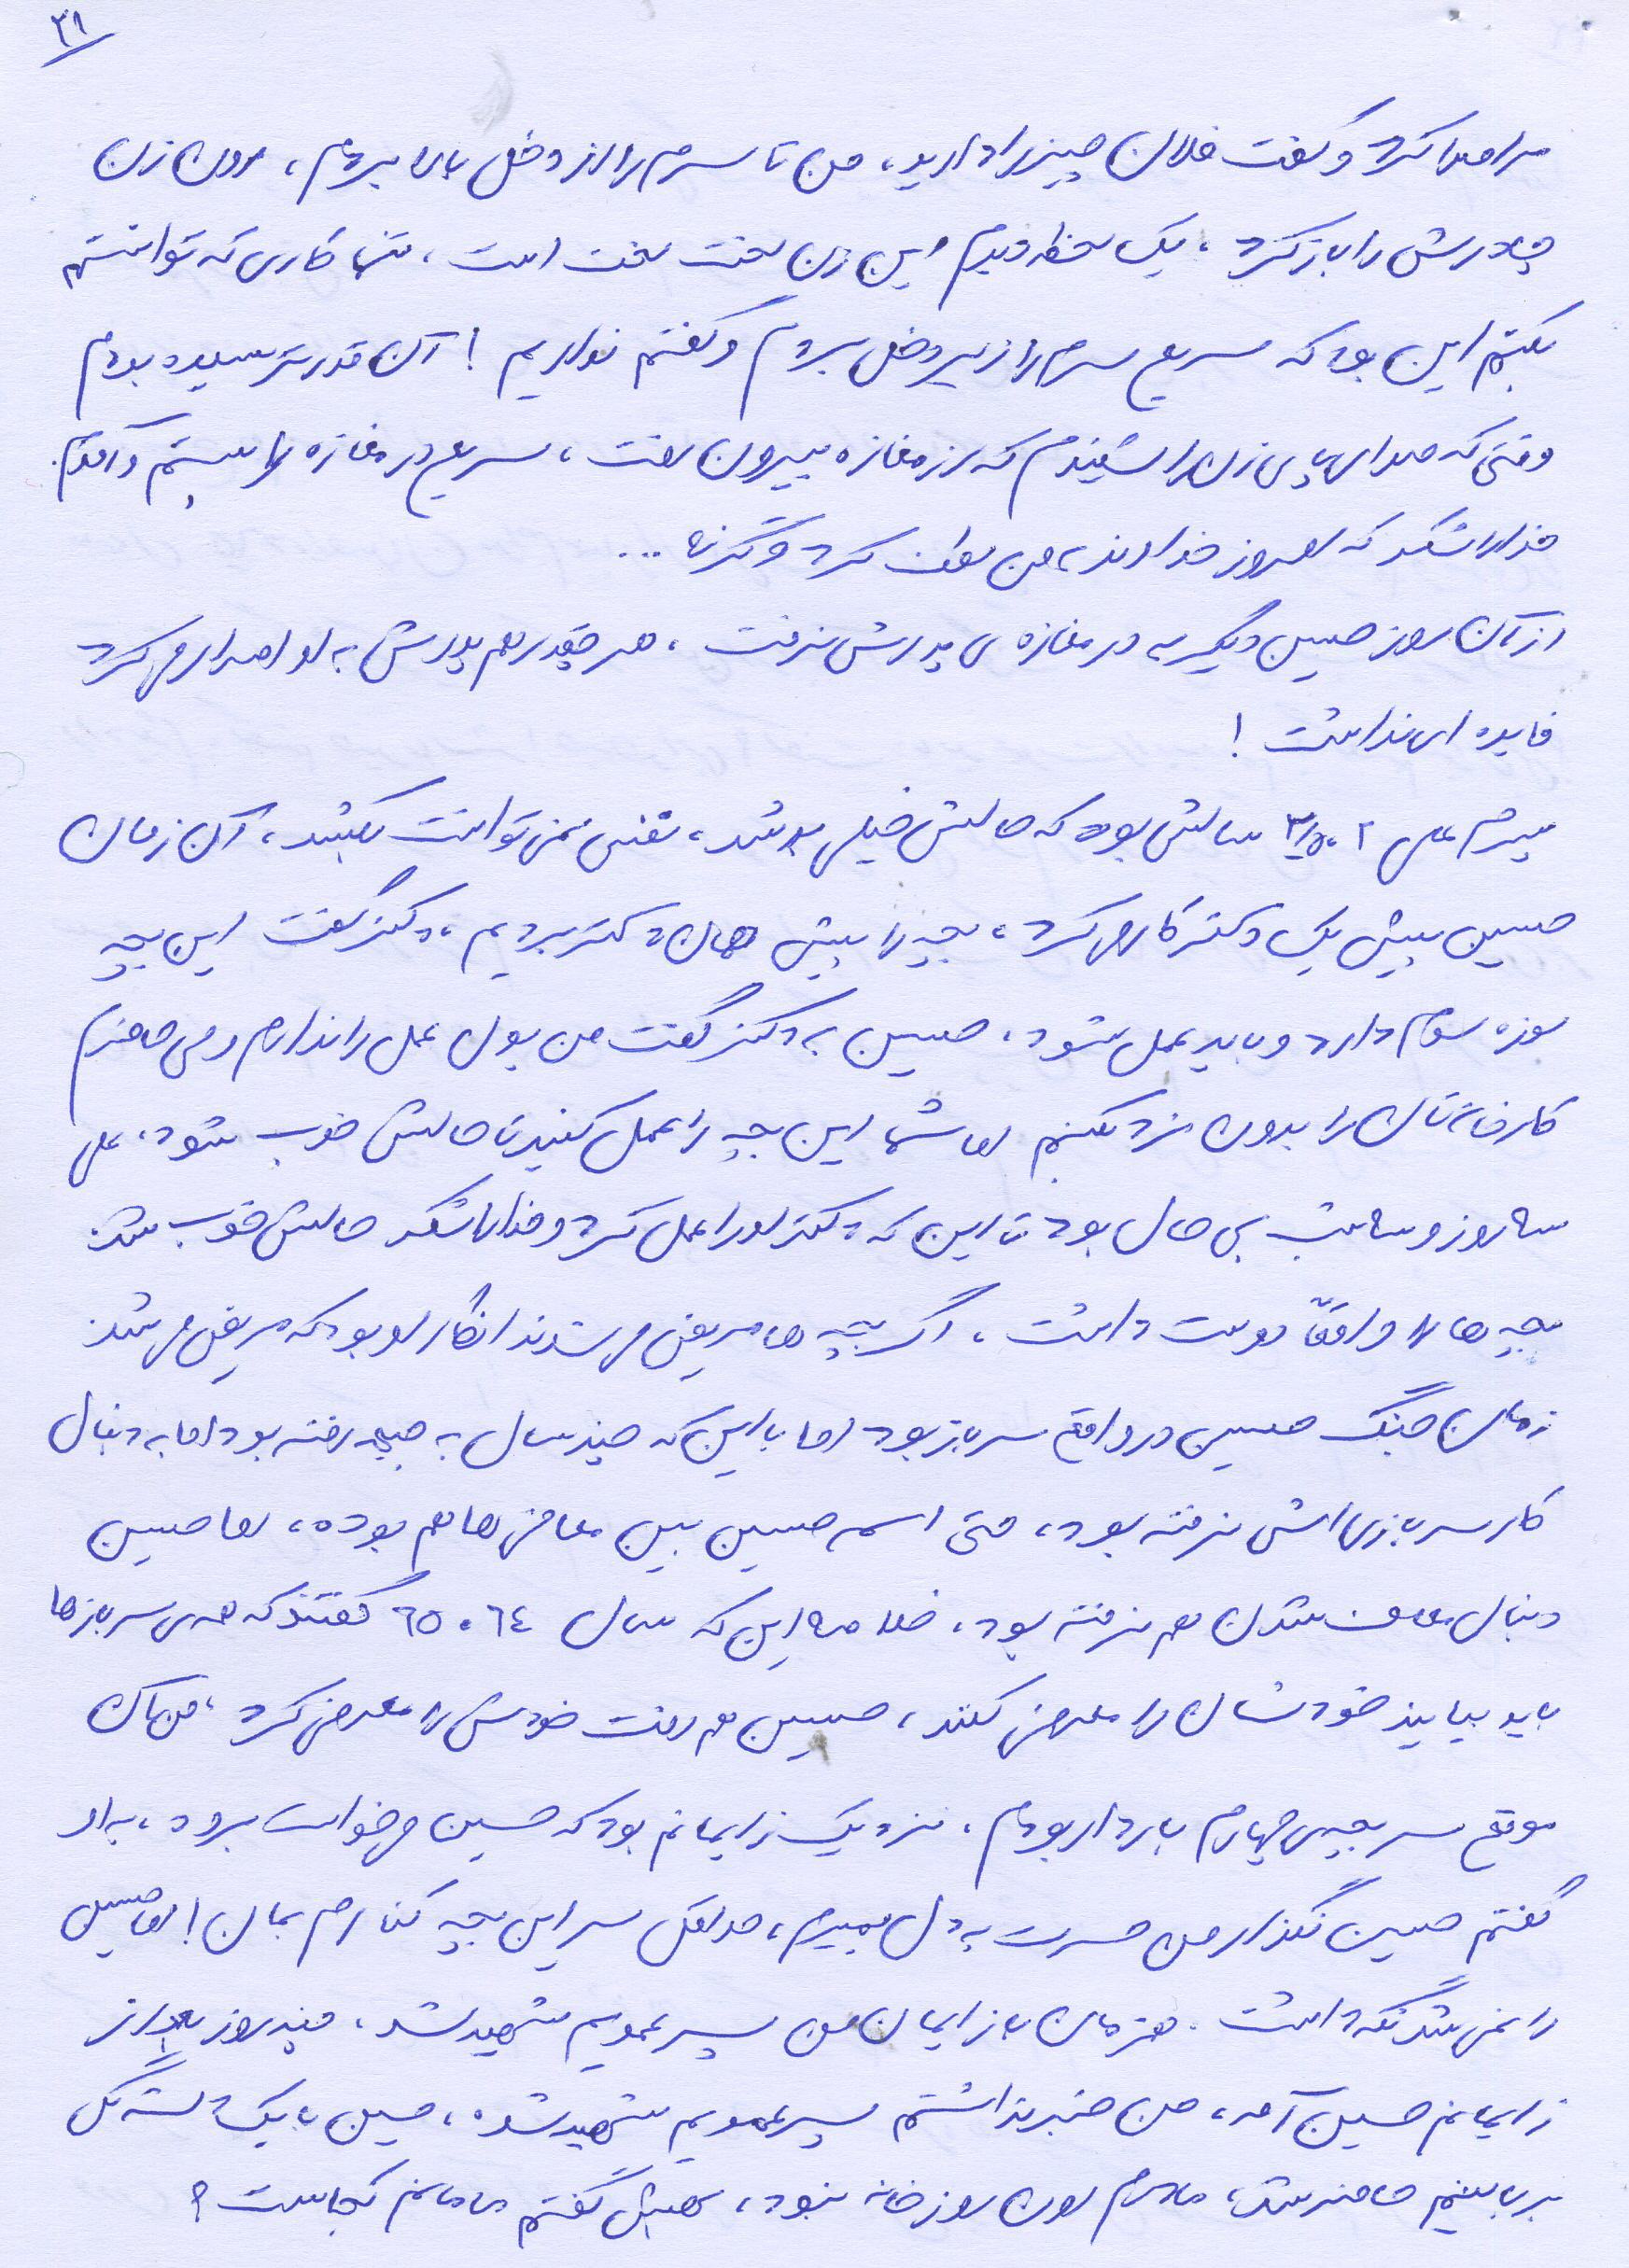 ۳۱
مرا صدا کرد و گفت فلان چیز را دارید، من تا سرم را از دخل بالا بردم، اون زن
چادرش را باز کرد، یک لحظه دیدم این زن لخت لخت است، تنها کاری که توانستم
بکنم این بود که سریع سرم را زیر دخل بردم و گفتم نداریم! آن قدر ترسیده بودم
وقتی که صدای پای زن را شنیدم که از مغازه بیرون رفت، سریع در مغازه را بستم و آمدم.
خدا را شکر که امروز خداوند به من لطف کرد وگرنه ...
از آن روز حسین دیگر به در مغازه ی پدرش نرفت، هر چقدر هم پدرش به او اصرار می کرد
فایده ای نداشت!
پسرم علی ۲، ۳/۵ سالش بود که حالش خیلی بد شد، نفس نمی توانست بکشد، آن زمان
حسین پیش یک دکتر کار می کرد، بچه را پیش همان دکتر بردیم، دکتر گفت این بچه
لوزه سوم دارد و باید عمل شود، حسین به دکتر گفت من پول عمل را ندارم ولی حاضرم
کارخانه تان را بدون مزد بکنم اما شما این بچه را عمل کنید تا حالش خوب شود، علی
سه روز و سه شب بی حال بود تا این که دکتر او را عمل کرد و خدا را شکر حالش خوب شد.
بچه ها را واقعاً دوست داشت، اگر بچه ها مریض می شدند انگار او بود که مریض می شد.
زمان جنگ حسین در واقع سرباز بود اما با این که چند سال به جبهه رفته بود اما به دنبال
کار سربازی اش نرفته بود، حتی اسم حسین بین معافی ها هم بوده، اما حسین
دنبال معاف شدن هم نرفته بود، خلاصه این که سال ٦٤، ٦٥ گفتند که همه ی سربازها
باید بیایند خودشان را معرفی کنند، حسین هم رفت خودش را معرفی کرد، من آن
موقع سر بچه ی چهارم باردار بودم، نزدیک زایمانم بود که حسین می خواست برود، به او
گفتم حسین نگذار من حسرت به دل بمیرم، حداقل سر این بچه کنارم بمان! اما حسین
را نمی شد نگه داشت. همزمان با زایمان من پسر عمویم شهید شد، چند روز بعد از
زایمانم حسین آمد، من خبر نداشتم پسر عمویم شهید شده، حسین با یک دسته گل
بر بالینم حاضر شد، مادرم اون روز خانه نبود، بهش گفتم مامانم کجاست؟